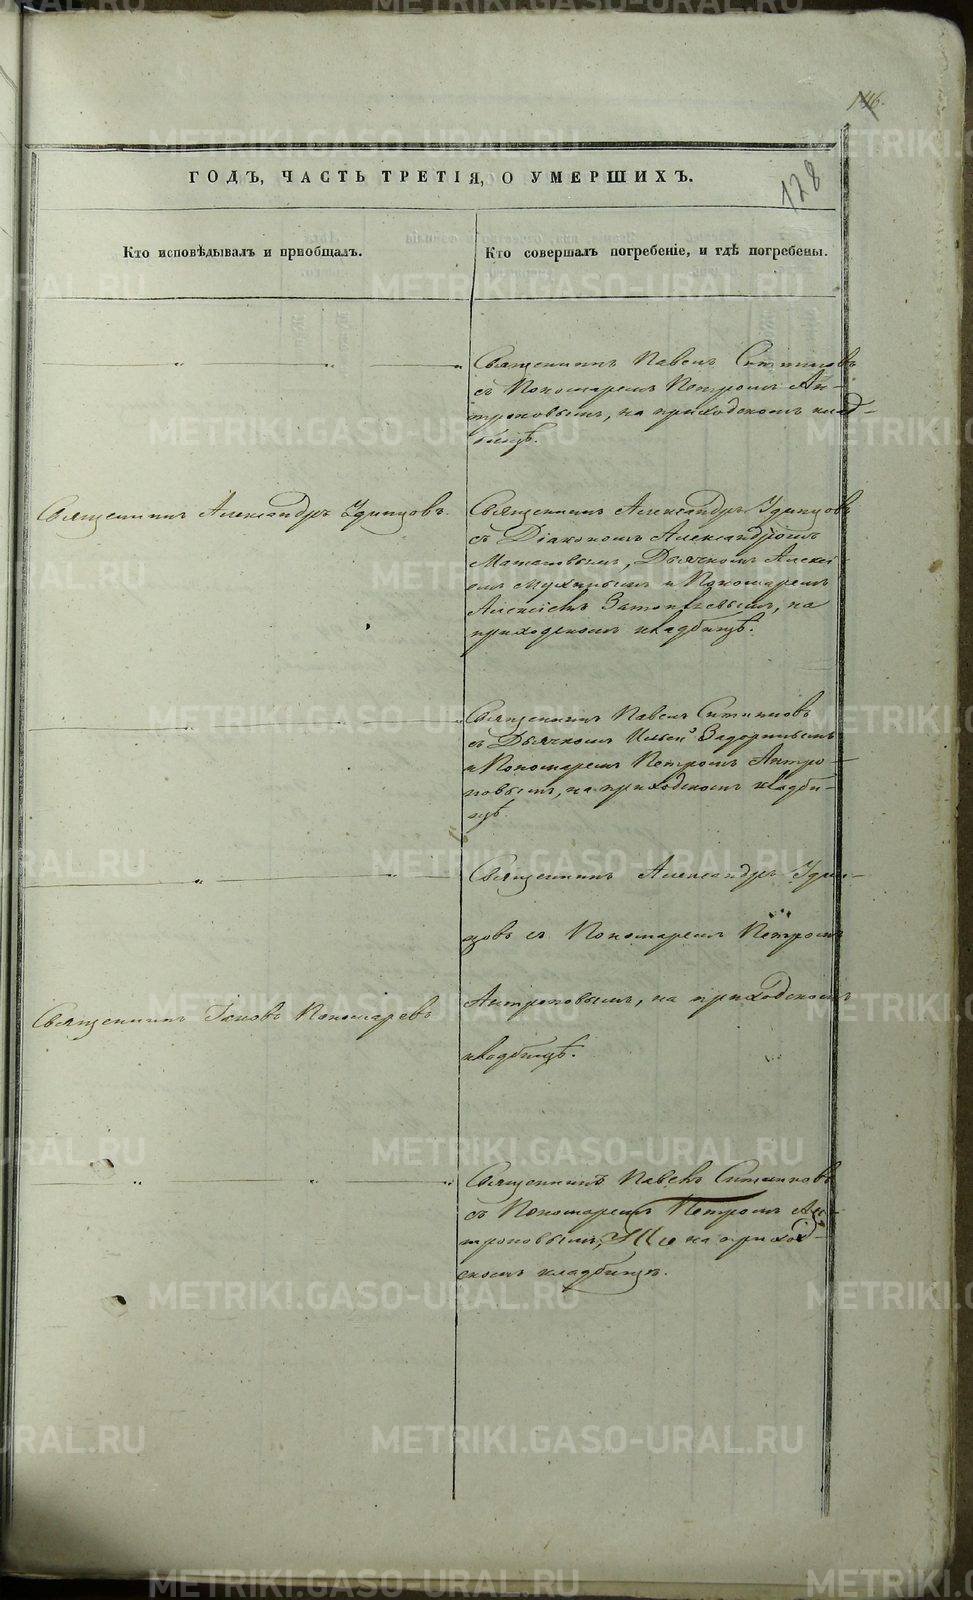 146.
128
ГОДЪ, ЧАСТЬ ТРЕТІЯ, О УМЕРШИХЪ.
Кто исповѣдывалъ и пріобщалъ.
Кто совершалъ погребеніе, и гдѣ погребены.
Священникъ Павелъ
съ Пономаремъ Петромъ Ан-
троповымъ, на приходскомъ клад-
бищѣ.
Священникъ Александръ Удинцовъ.
Священникъ Александръ Удинцовъ
съ Діакономъ Александромъ
Дьячкомъ Алексі-
емъ Мухинымъ и Пономаремъ
Алексіемъ на
приходскомъ кладбищѣ.
Священникъ Павелъ
съ Дьячкомъ Ильей Задоринымъ
и Пономаремъ Петромъ Антро-
повымъ, на приходскомъ кладби-
щѣ.
Священникъ Александръ Удин-
цовъ съ Пономаремъ Петромъ
Антроповымъ, на приходскомъ
кладбищѣ.
Священникъ Іаковъ Пономаревъ
Священникъ Павелъ
съ Пономаремъ Петромъ Ан-
троповымъ, на приход-
скомъ кладбищѣ.
METRIKI.GASO-URAL.RU